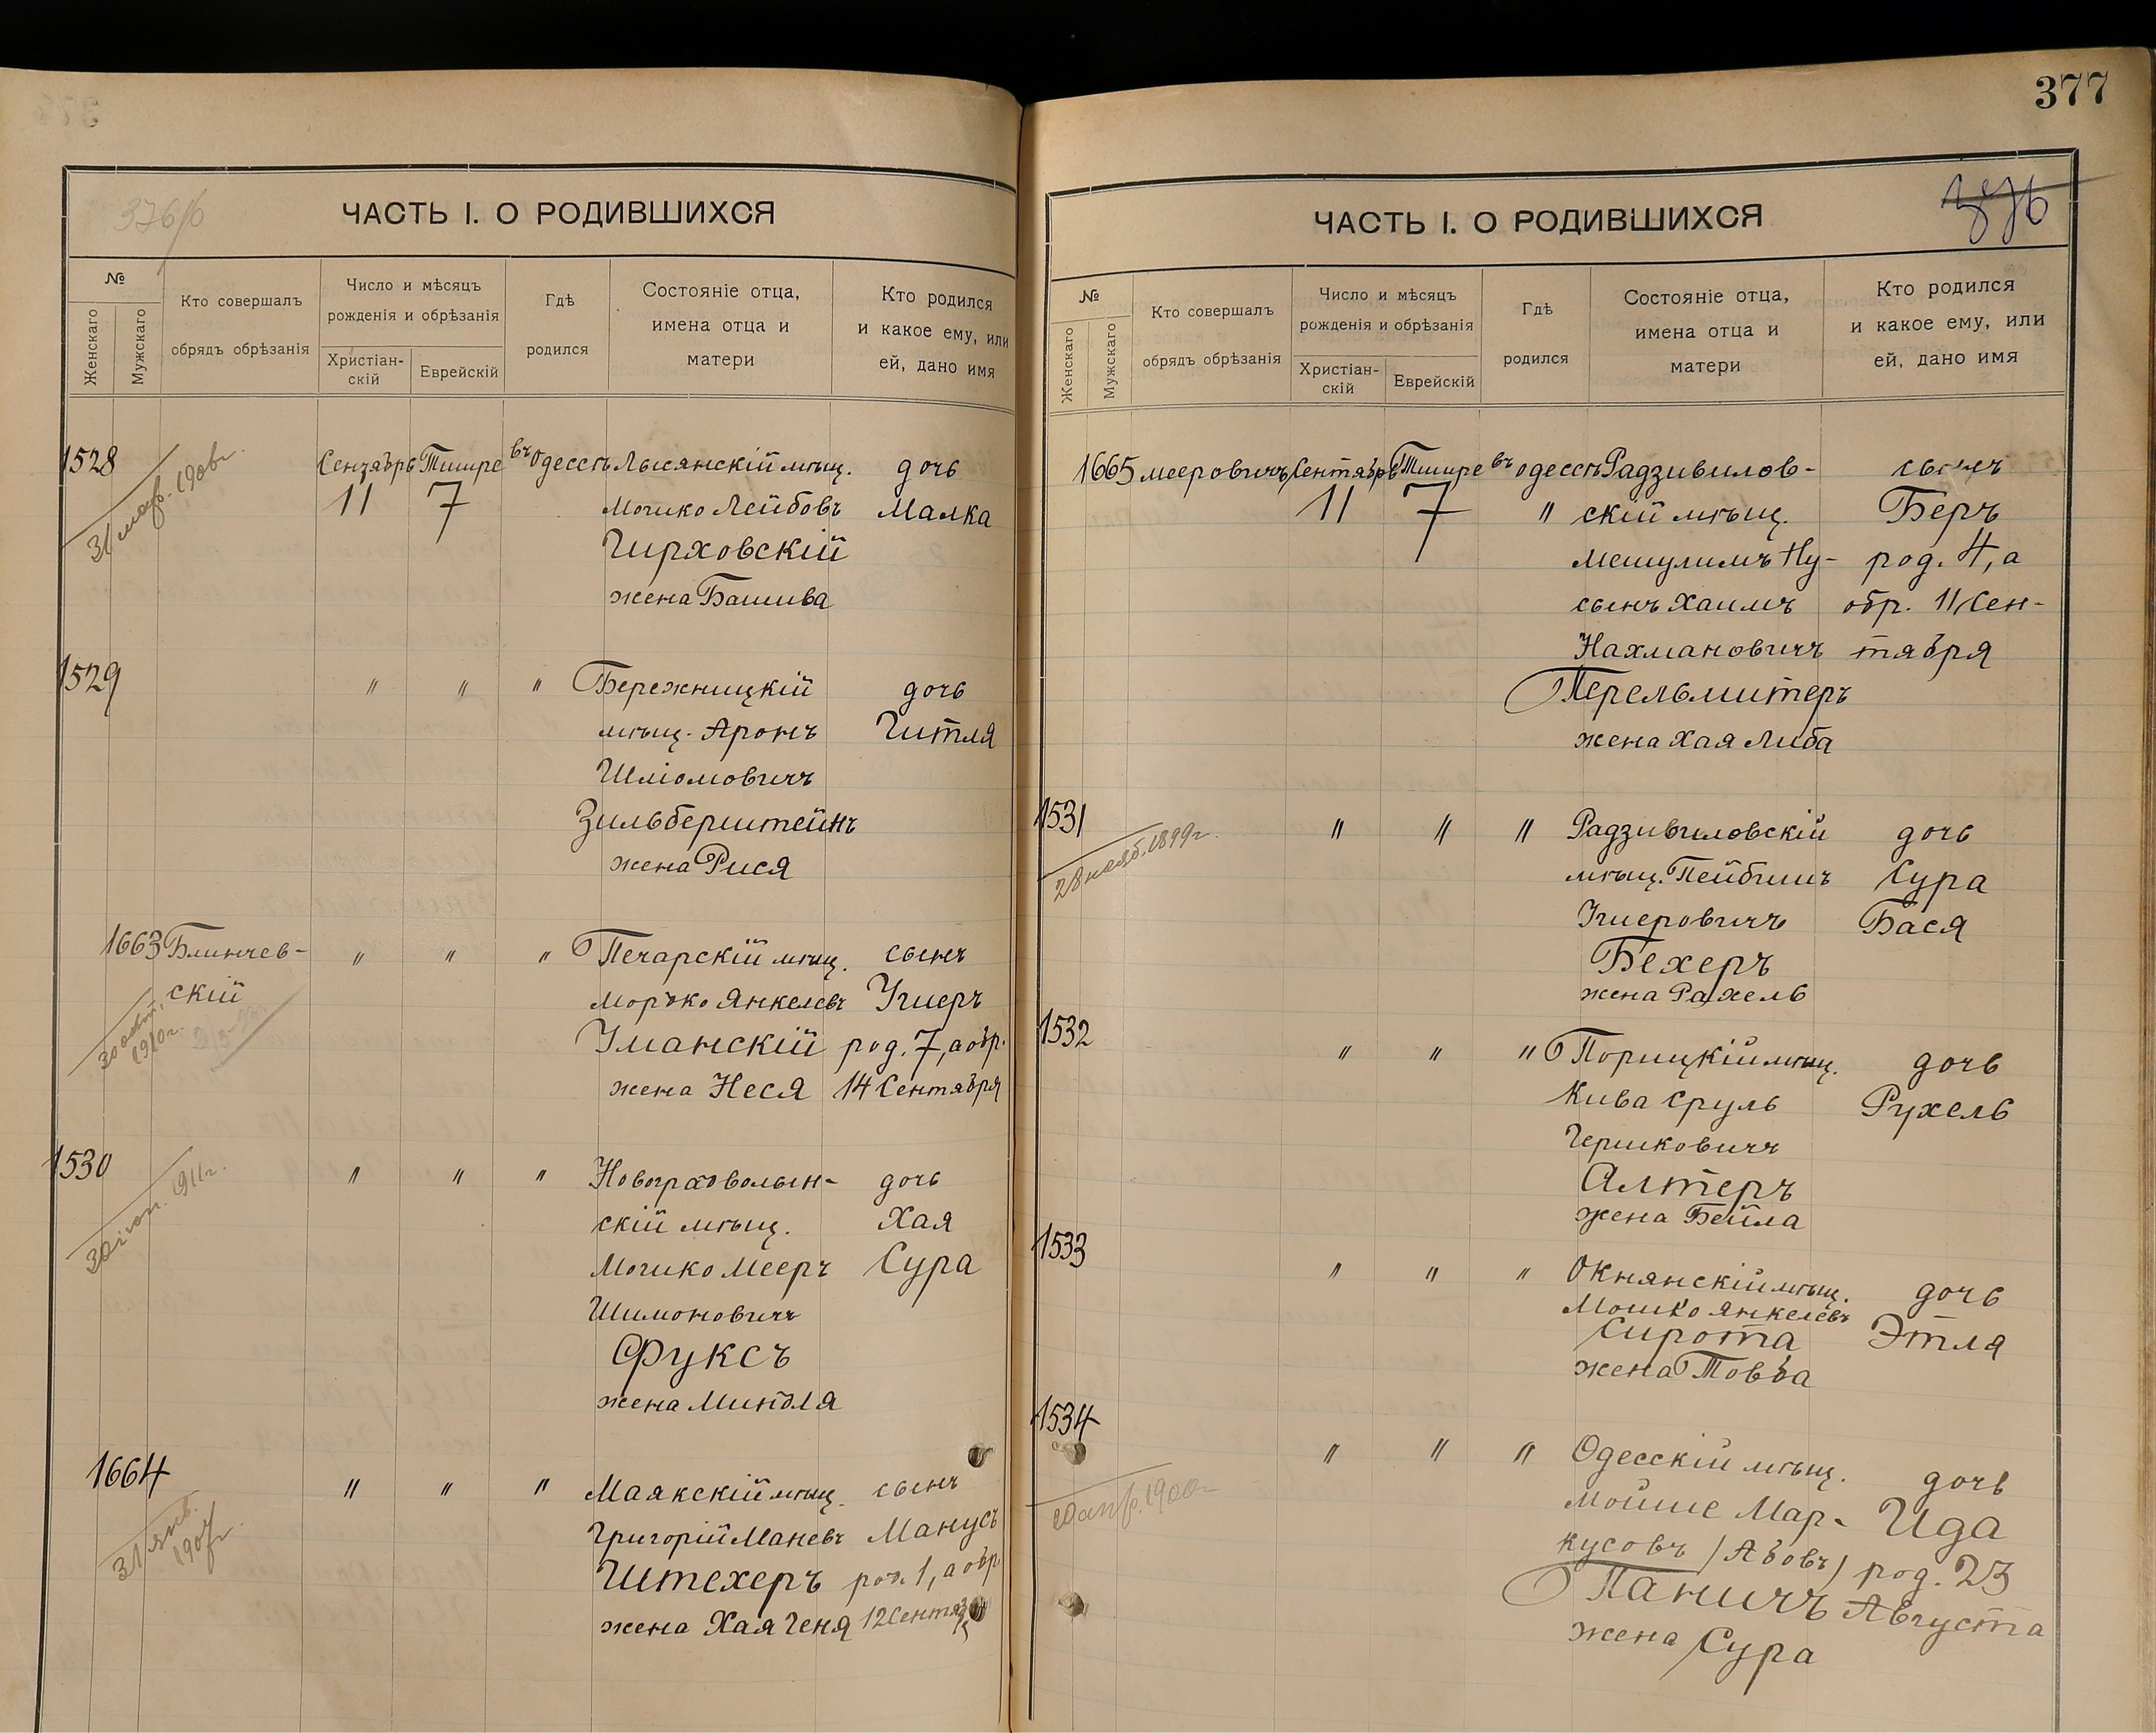 376/б
ЧАСТЬ I. О РОДИВШИХСЯ
№
Женскаго
Мужскаго
Кто совершалъ
обрядъ обрѣзанія
Число и мѣсяцъ
рожденія и обрѣзанія
Христіан-
скій
Еврейскій
Гдѣ
родился
Состояніе отца,
имена отца и
матери
Кто родился
и какое ему, или
ей, дано имя
1528
31 мар. 1906 г.
Сентябрь Тишре въ Одессѣ Лысянскій мѣщ. дочь
11 7 Мошко Лейбовъ Малка
Чирховскій
жена Башива
1529 " " " Бережницкій дочь
мѣщ. Аронъ Гитля
Шліомовичъ
Зильберштейнъ
жена Рися
1663 Блинчев- " " " Печарскій мѣщ. сынъ
скій Моръко Янкелевъ Ушеръ
1910 г.
Уманскій род. 7, а обр.
жена Неся 14 Сентября
1530 " " " Новоградволын- дочь
1911 г.
скій мѣщ. Хая
Мошко Мееръ Сура
Шимоновичъ
Фуксъ
жена Миндля
1664 " " " Маякскій мѣщ. сынъ
31 янв.
1907 г.
Григорій Маневъ Манусъ
Штехеръ род. 1, а обр.
жена Хая Геня 12 Сентя
377
376
ЧАСТЬ I. О РОДИВШИХСЯ
№
Женскаго
Мужскаго
Кто совершалъ
обрядъ обрѣзанія
Число и мѣсяцъ
рожденія и обрѣзанія
Христіан-
скій
Еврейскій
Гдѣ
родился
Состояніе отца,
имена отца и
матери
Кто родился
и какое ему, или
ей, дано имя
1665 Мееровичъ Сентябрь Тишре въ Одессѣ Радзивилов- сынъ
11 7 " скій мѣщ. Беръ
Мешулимъ Ну- род. 4, а
сынъ Хаимъ обр. 11 Сен-
Нахмановичъ тября
Перельмитеръ
жена Хая Либа
1531 " " " Радзивиловскій дочь
28 нояб. 1899 г.
мѣщ. Лейбишъ Сура
Ушеровичъ Бася
Бехеръ
жена Рахель
1532 " " " Порицкій мѣщ. дочь
Кива Сруль Рухель
Гершковичъ
Алтеръ
жена Бейла
1533 " " " Окнянскій мѣщ. дочь
Мошко Янкелевъ
Сирота Этля
жена Товба
1534 " " " Одесскій мѣщ. дочь
апр. 1900 г.
Мойше Мар- Ида
кусовъ /Абовъ/ род. 23
Паничъ Августа
жена Сура